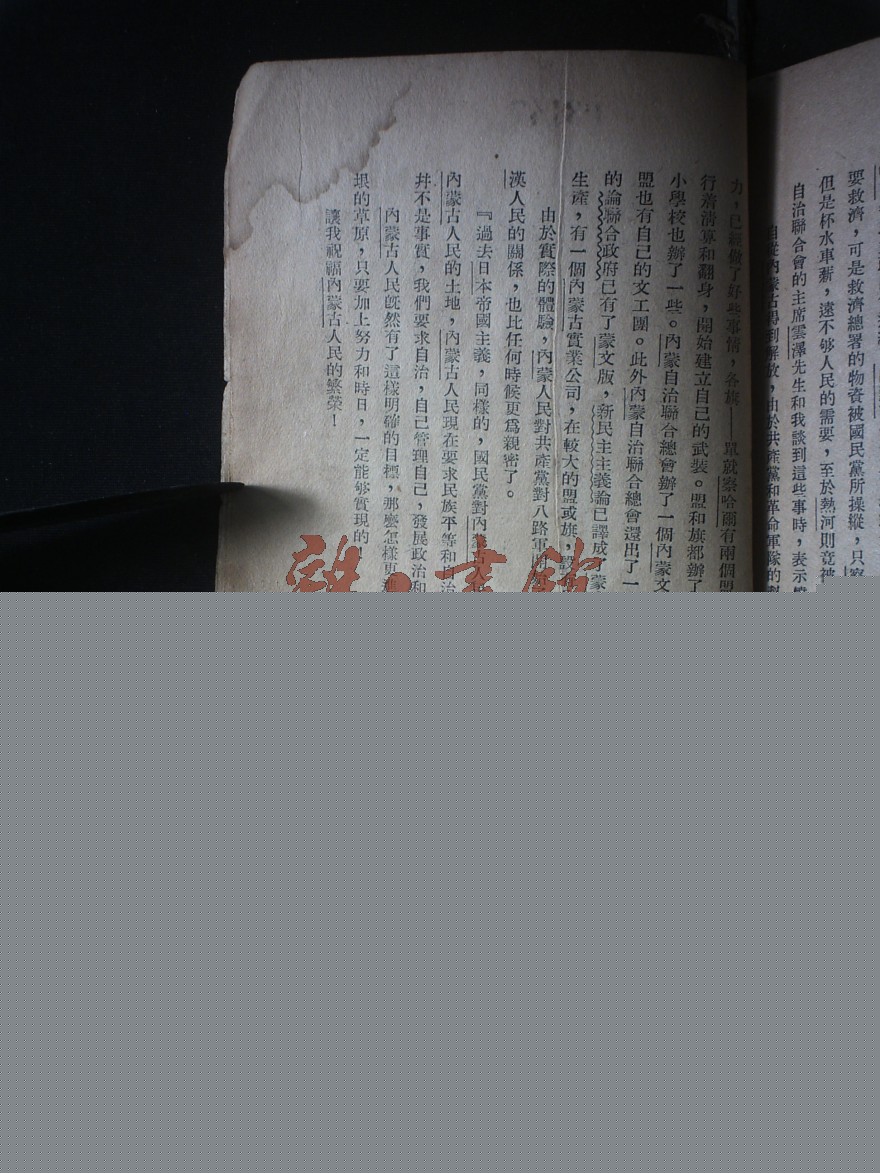 要救濟，可是救濟總署的物資被國民黨所操縱，只察
但是杯水車薪，遠不够人民的需要，至於熱河則竟被
自治聯合會的主席雲澤先生和我談到這些事時，表示
自從內蒙古得到解放，由於共產黨和革命軍隊的
力，已經做了好些事情，各旗——單就察哈爾有兩個盟
行着清算和翻身，開始建立自己的武裝。盟和旗都辦了
小學校也辦了一些。內蒙自治聯合總會辦了一個內蒙文
盟也有自己的文工團。此外內蒙自治聯合總會還出了一
的論聯合政府已有了蒙文版，新民主主義論已譯成了蒙
生產，有一個內蒙古實業公司，在較大的盟或旗，設有
由於實際的體驗，內蒙人民對共產黨對八路軍
漢人民的關係，也比任何時候更爲親密了。
『過去日本帝國主義，同樣的，國民黨對內蒙古人
內蒙古人民的土地，內蒙古人民現在要求民族平等和自治
幷不是事實，我們要求自治，自己管理自己，發展政治和
內蒙古人民旣然有了這樣明確的目標，那麽怎樣更
垠的草原，只要加上努力和時日，一定能够實現的
讓我祝福內蒙古人民的繁榮！